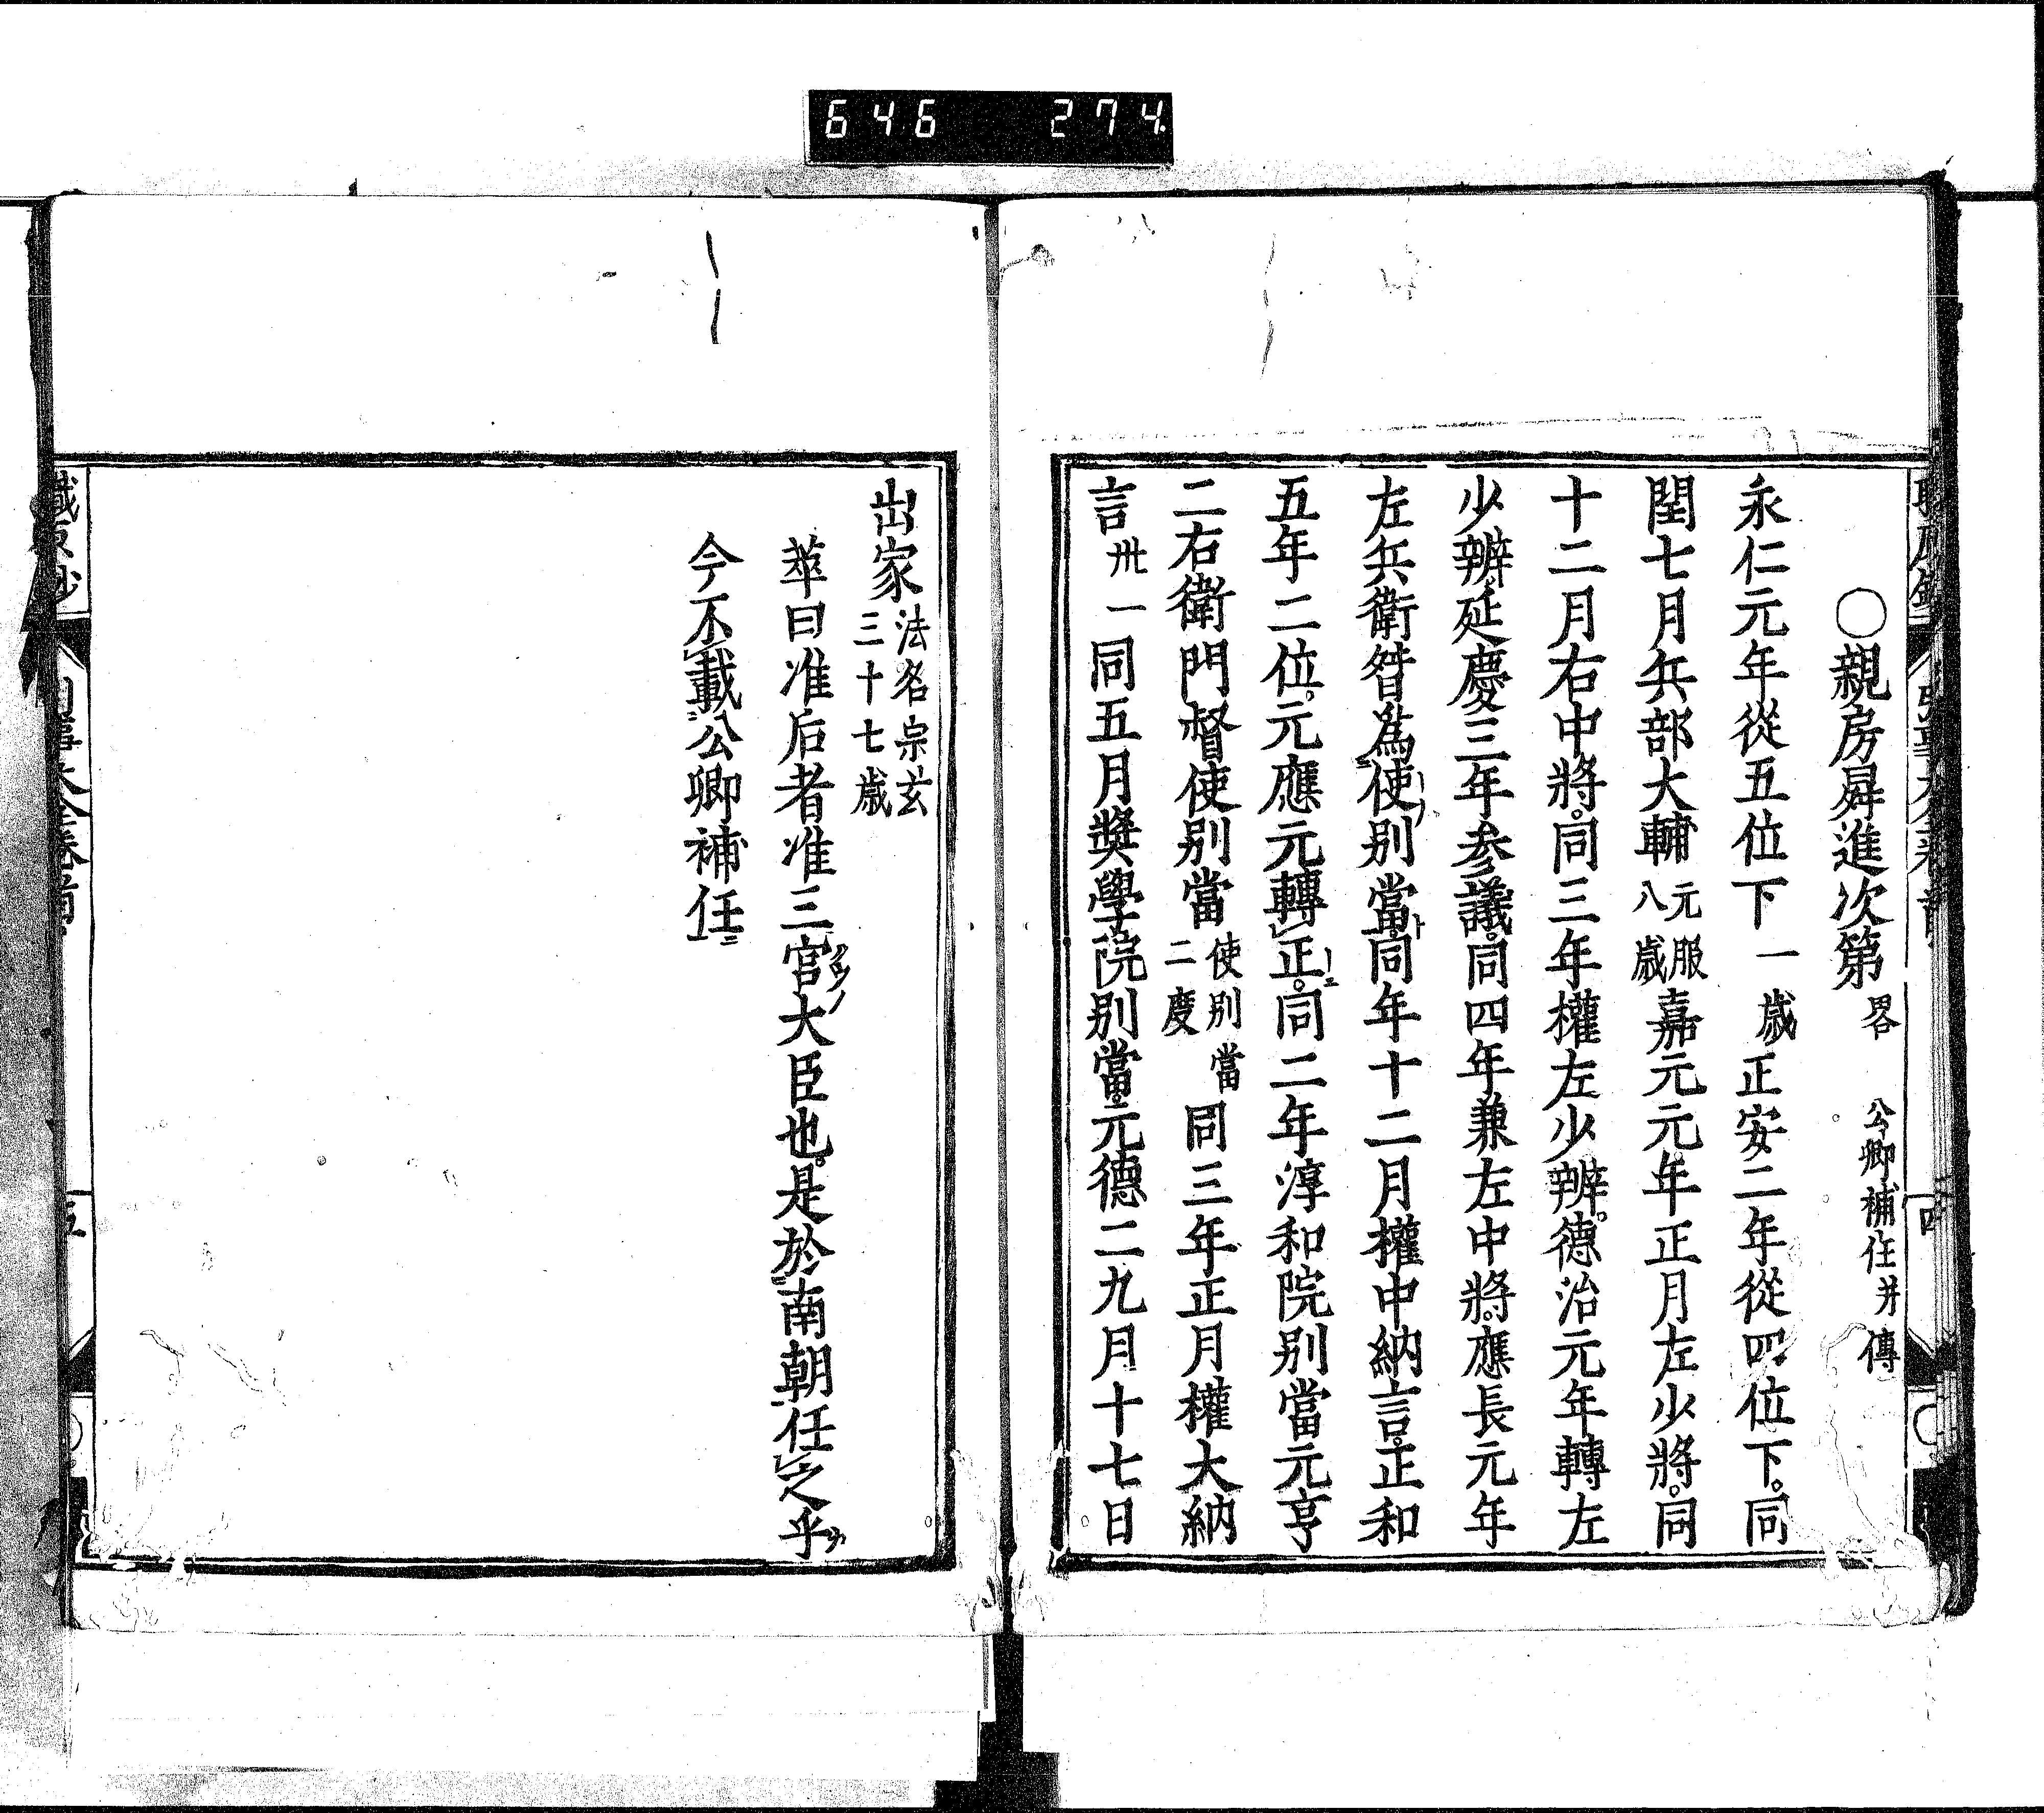 646 274
○親房昇進次第 畧 公卿補任并傳
永仁元年從五位下 一歲 正安二年從四位下。同
閏七月兵部大輔 元服八歲 嘉元元年正月左少將。同
十二月右中將。同三年權左少辨。德治元年轉左
少辨。延慶三年参議。同四年兼左中將。應長元年
左兵衛督為使別當。同年十二月權中納言。正和
五年二位。元應元轉正。同二年淳和院別當元亨
二右衛門督使別當 使別當二度 同三年正月權大納
言 卅一 同五月獎學院別當。元德二九月十七日
四
出家 法名宗玄 三十七歲
萃曰准后者准三宮大臣也。是於南朝任之乎
今不載公卿補任
五